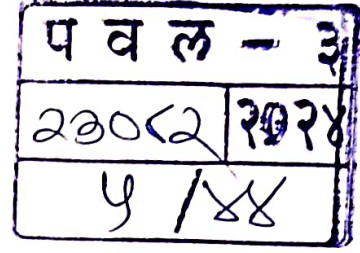 प व ल - ३
२३०८२ २०२४
५ / ४४